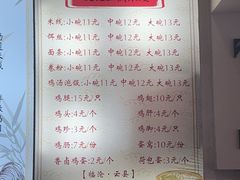 米线:小碗11元 中碗12元 大碗13元
饵丝:小碗11元 中碗12元 大碗13元
面条:小碗11元 中碗12元 大碗13元
卷粉:小碗11元 中碗12元 大碗13元
鸡汤泡饭:小碗11元 中碗12元 大碗13元
鸡腿:15元/只 鸡翅:10元/只
鸡头:4元/个 鸡肝:4元/个
鸡珍:3元/个 鸡脚:4元/只
鸡肠:7元/份 蛋窝:10元/份
香卤鸡蛋:2元/个 荷包蛋:3元/个
【临沧·云县】